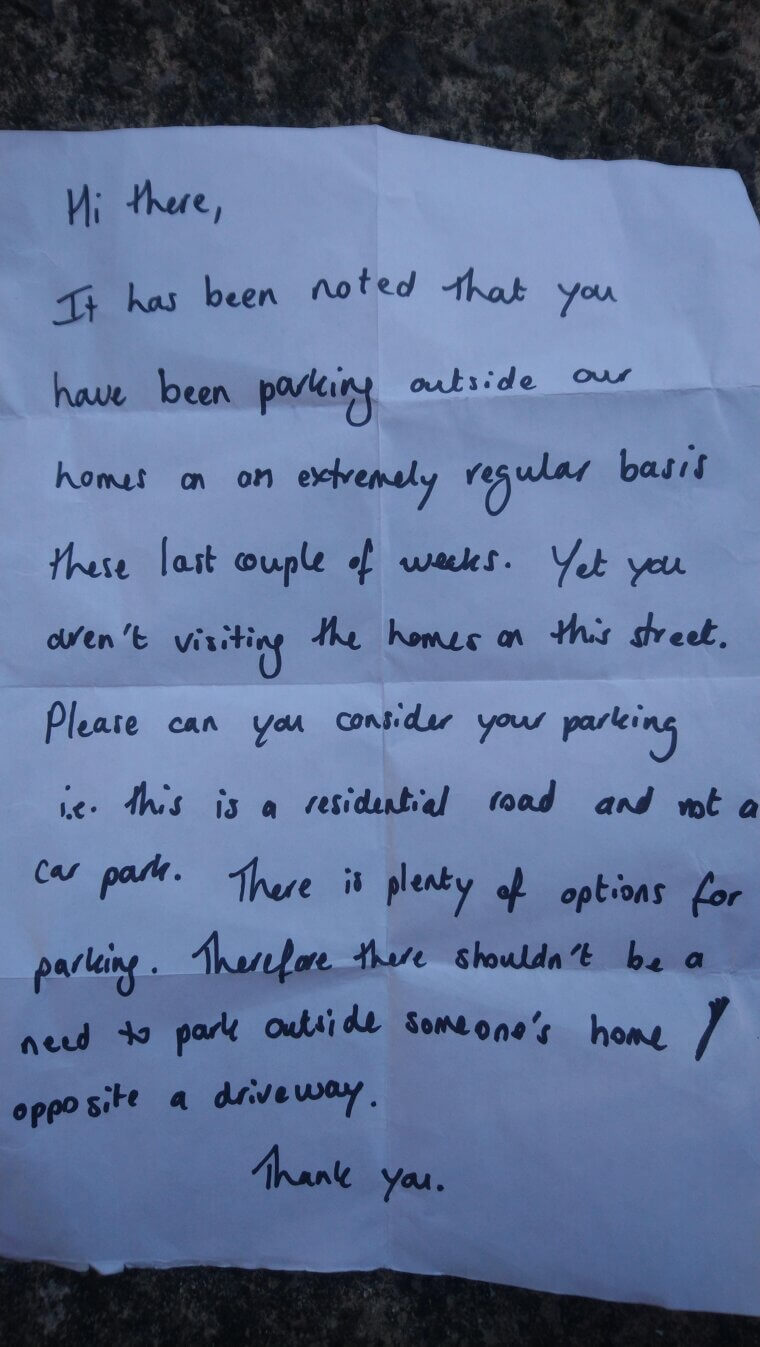 Hi there,
It has been noted that you
have been parking outside our
homes on an extremely regular basis
these last couple of weeks. Yet you
aren't visiting the homes on this street.
Please can you consider your parking
i.e. this is a residential road and not a
car park. There is plenty of options for
parking. Therefore there shouldn't be a
need to park outside someone's home /
opposite a driveway.
Thank you.